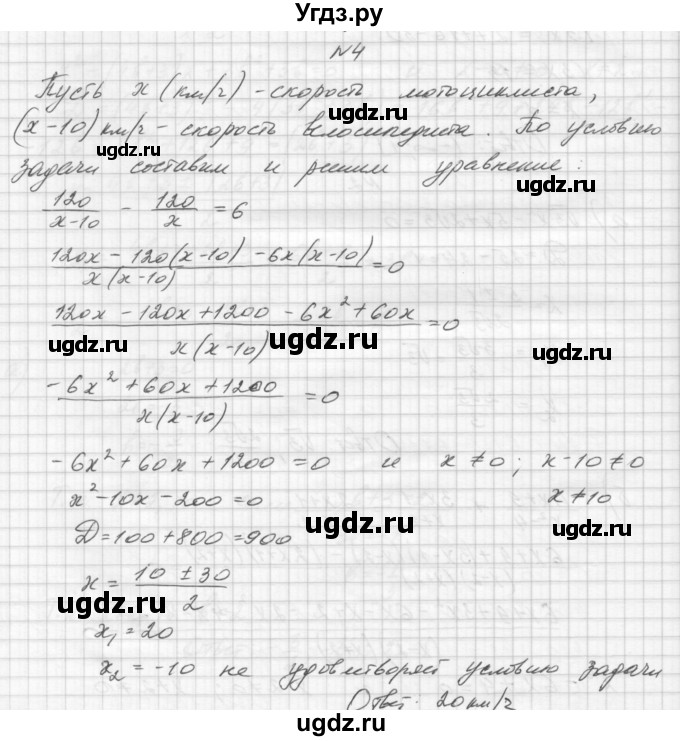 Угдз.ру
№4
Пусть x (км/ч) - скорость мотоциклиста,
(x-10) км/ч - скорость велосипедиста. По условию
www.ugdz.ru
задачи составим и решим уравнение:
ugdz.ru
120/(x-10) - 120/x = 6
ugdz.ru
(120x - 120(x-10) - 6x(x-10))/(x(x-10)) = 0
(120x - 120x + 1200 - 6x² + 60x)/(x(x-10)) = 0
ugdz.ru ugdz.ru ugdz.ru
(-6x² + 60x + 1200)/(x(x-10)) = 0
-6x² + 60x + 1200 = 0 и x ≠ 0; x-10 ≠ 0
x² - 10x - 200 = 0 x ≠ 10
Д = 100 + 800 = 900
ugdz.ru ugdz.ru
x = (10 ± 30)/2
ugdz.ru
x₁ = 20
x₂ = -10 не удовлетворяет условию задачи
Ответ: 20 км/ч
ugdz.ru